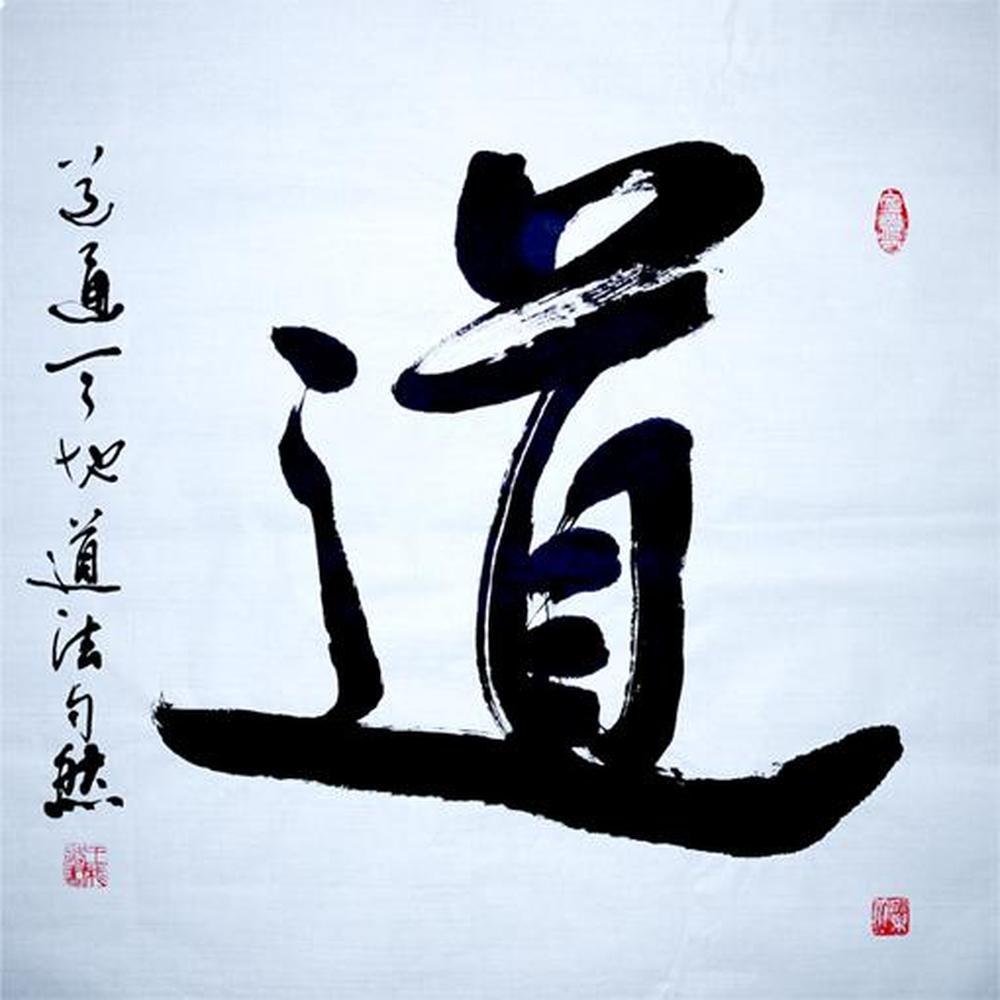 道
道通天地道法自然